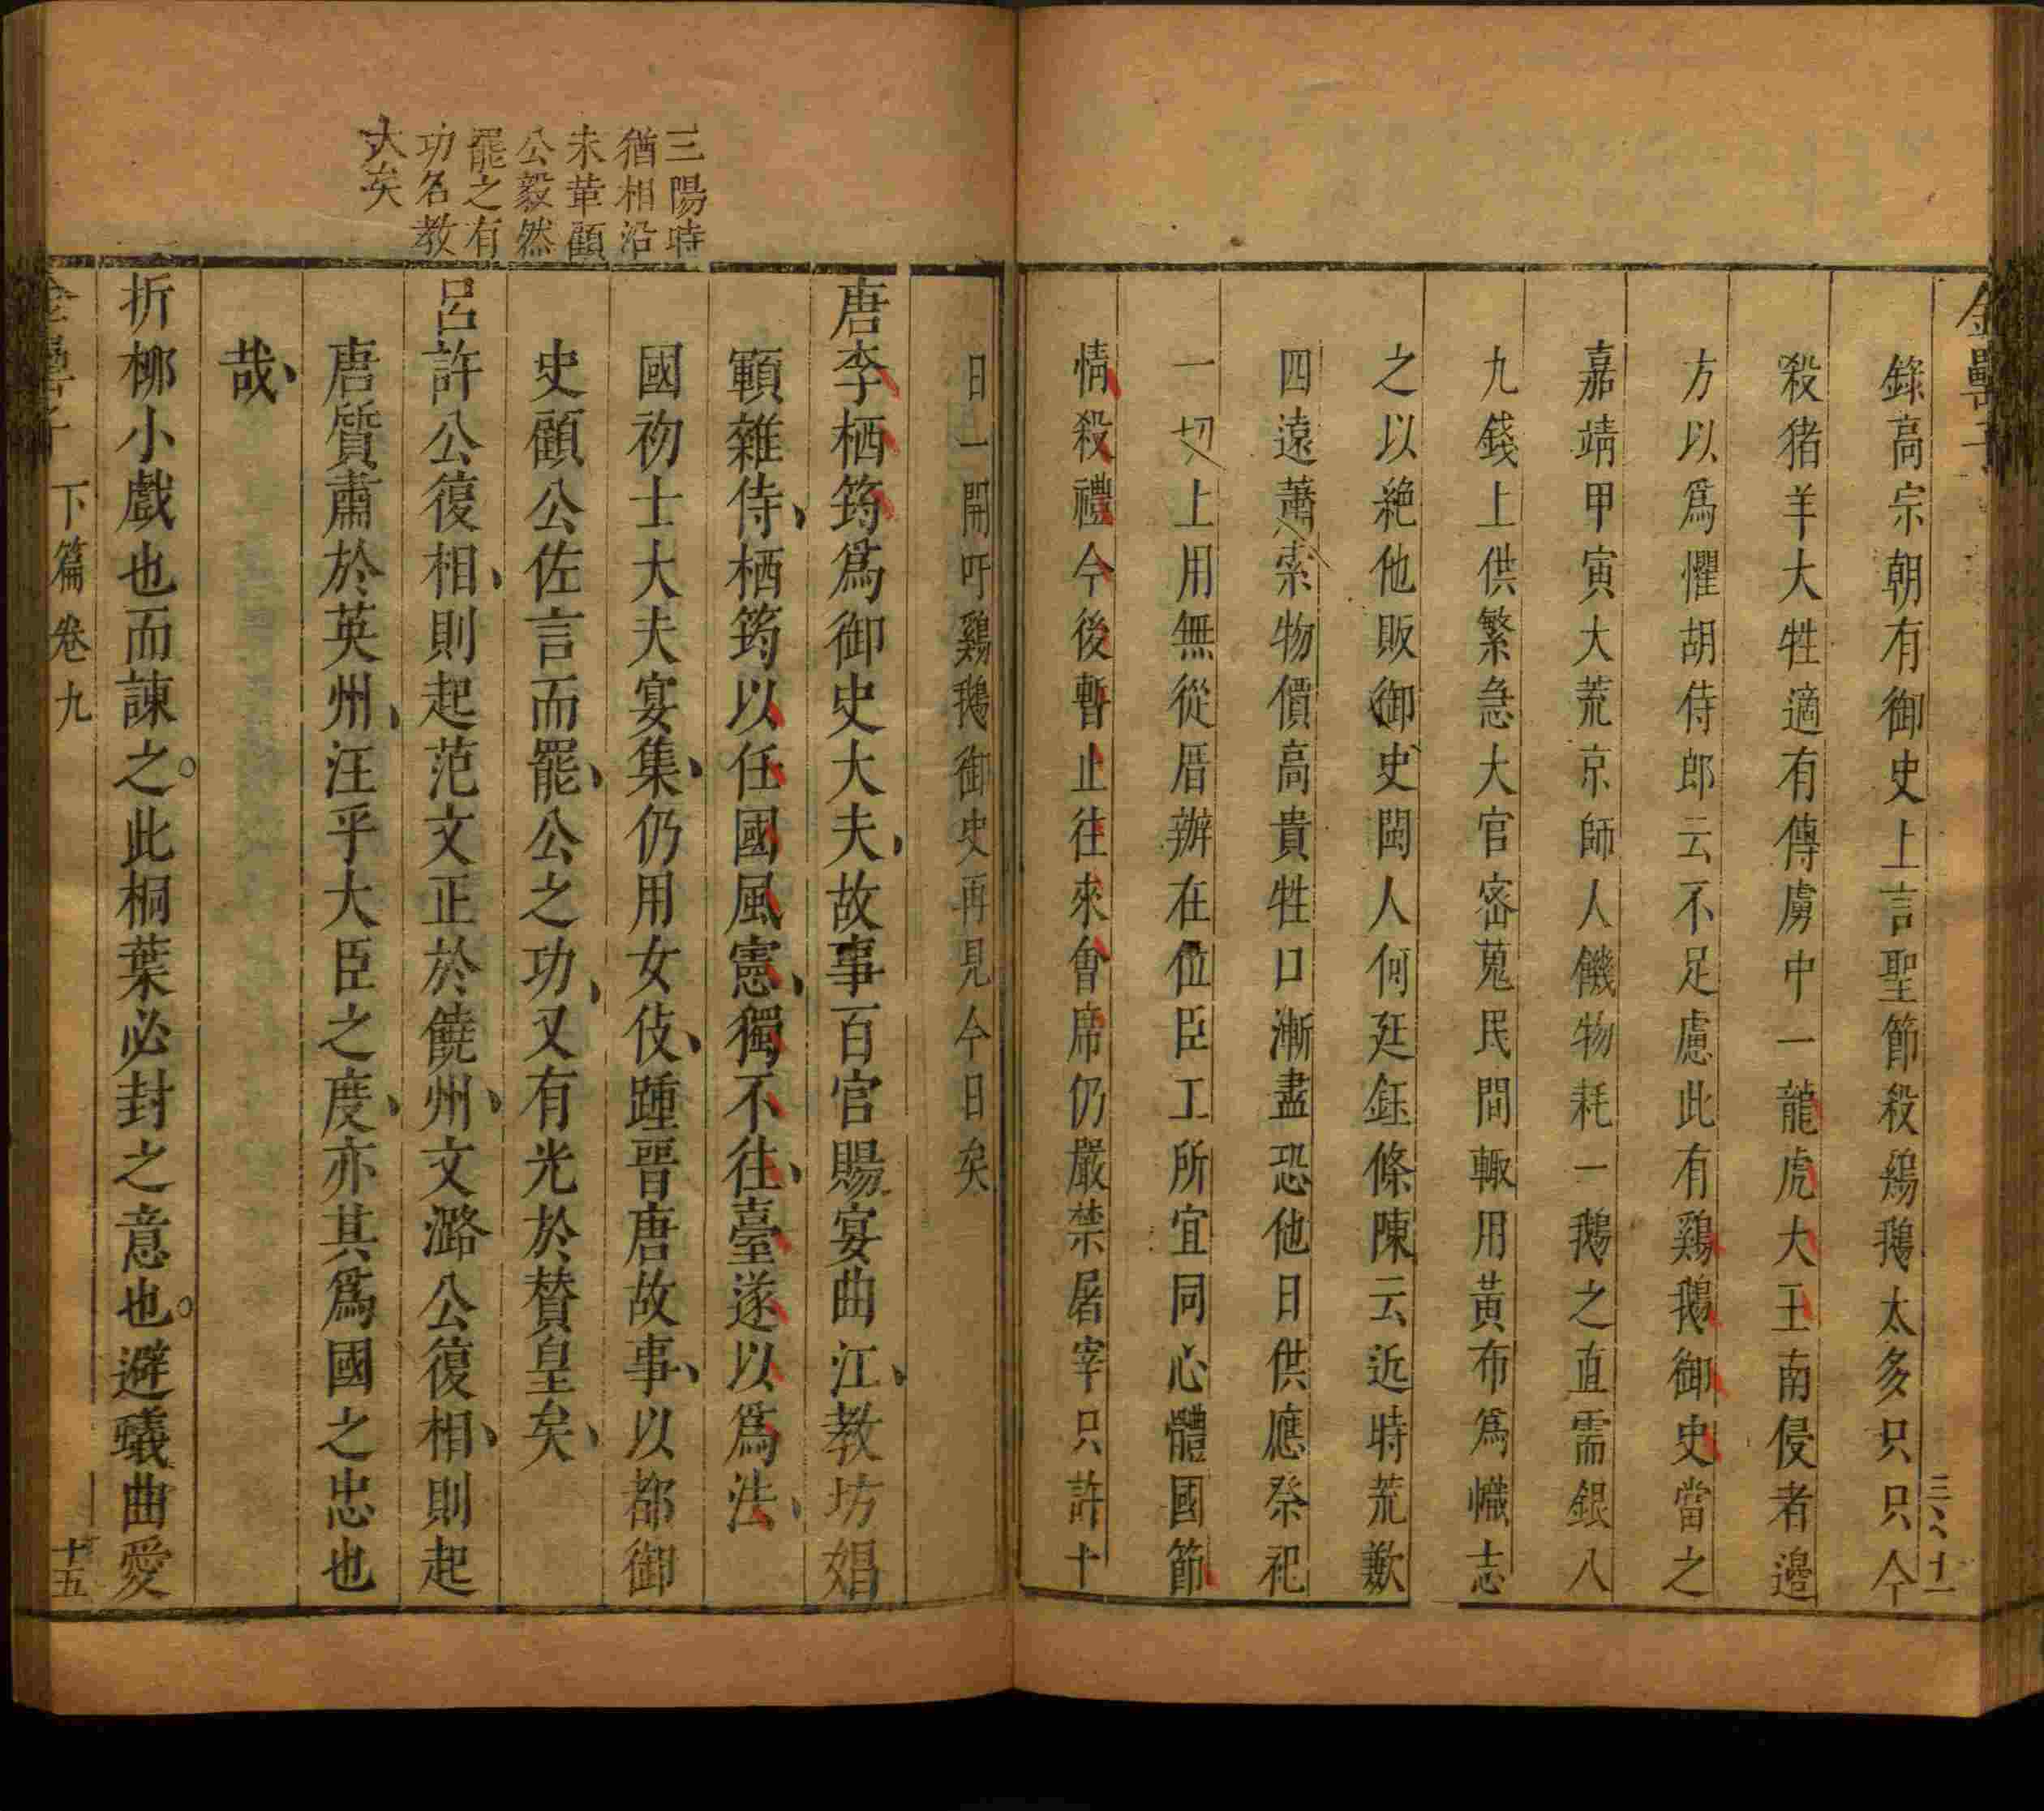 金罍子
錄高宗朝有御史上言聖節殺鷄鵝太多只只今
殺猪羊大牲適有傳虜中一龍虎大王南侵者邊
方以爲懼胡侍郎云不足慮此有鷄鵝御史當之
嘉靖甲寅大荒京師人饑物耗一鵝之直需銀八
九錢上供繁急大官密蒐民間輙用黃布爲幟志
之以絶他販御史閩人何廷鈺條陳云近時荒歉
四遠蕭索物價高貴牲口漸盡恐他日供應祭祀
一切上用無從厝辦在位臣工所宜同心體國節
情殺禮今後暫止往來會席仍嚴禁屠宰只許十
日一開吁鷄鵝御史再見今日矣
唐李栖筠爲御史大夫故事百官賜宴曲江教坊娼
顐雜侍栖筠以任國風憲獨不往臺遂以爲法
國初士大夫宴集仍用女伎踵晉唐故事以都御
史顧公佐言而罷公之功又有光於賛皇矣
呂許公復相則起范文正於饒州文潞公復相則起
唐質肅於英州汪乎大臣之度亦其爲國之忠也
哉
折柳小戲也而諫之此桐葉必封之意也避蟻曲愛
下篇卷九
十五
三陽時
猶相沿
未革顧
公毅然
罷之有
功名教
大矣